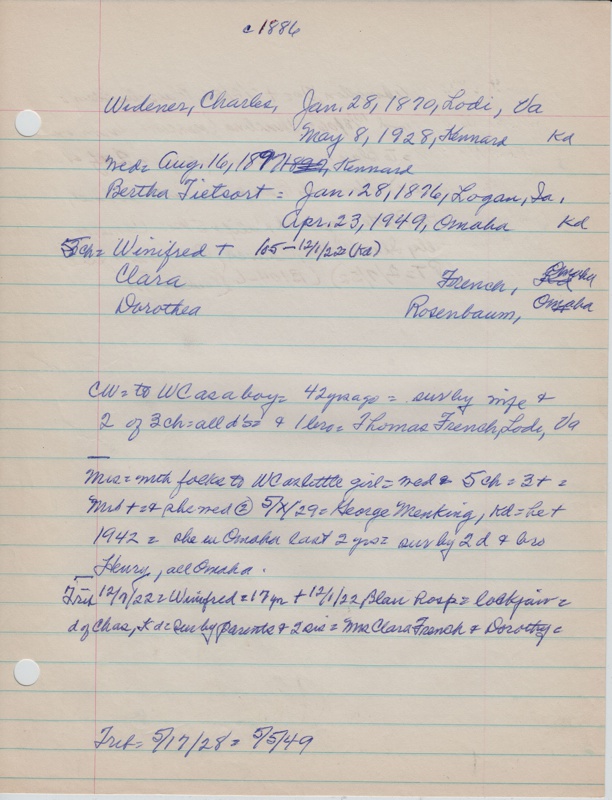 c1886
Widener, Charles, Jan. 28, 1870, Lodi, Va
May 8, 1928, Kennard Kd
wed= Aug. 16, 1897, Kennard
Bertha Tietsort = Jan. 28, 1876, Logan, Ia.
Apr. 23, 1949, Omaha Kd
5ch= Winifred + 105-12/1/22 (Kd)
Clara French, Omaha
Dorothea Rosenbaum, Omaha
CW= to WC as a boy= 42 yrs ago = sur by wife &
2 of 3 ch= all d's= & 1 bro= Thomas French, Lodi, Va
Mrs= with folks to WC as little girl= wed & 5 ch = 3+ =
Mr + = & she wed ② 5/X/29= George Menking, Kd= he +
1942 = she in Omaha last 2 yrs= sur by 2 d & bro
Henry, all Omaha.
Trib 12/7/22= Winifred= 17 yr + 12/1/22, Blair Hosp= lockjaw=
d of Chas, Kd= sur by parents & 2 sis = Mrs Clara French & Dorothy=
Trib= 5/17/28= 5/5/49